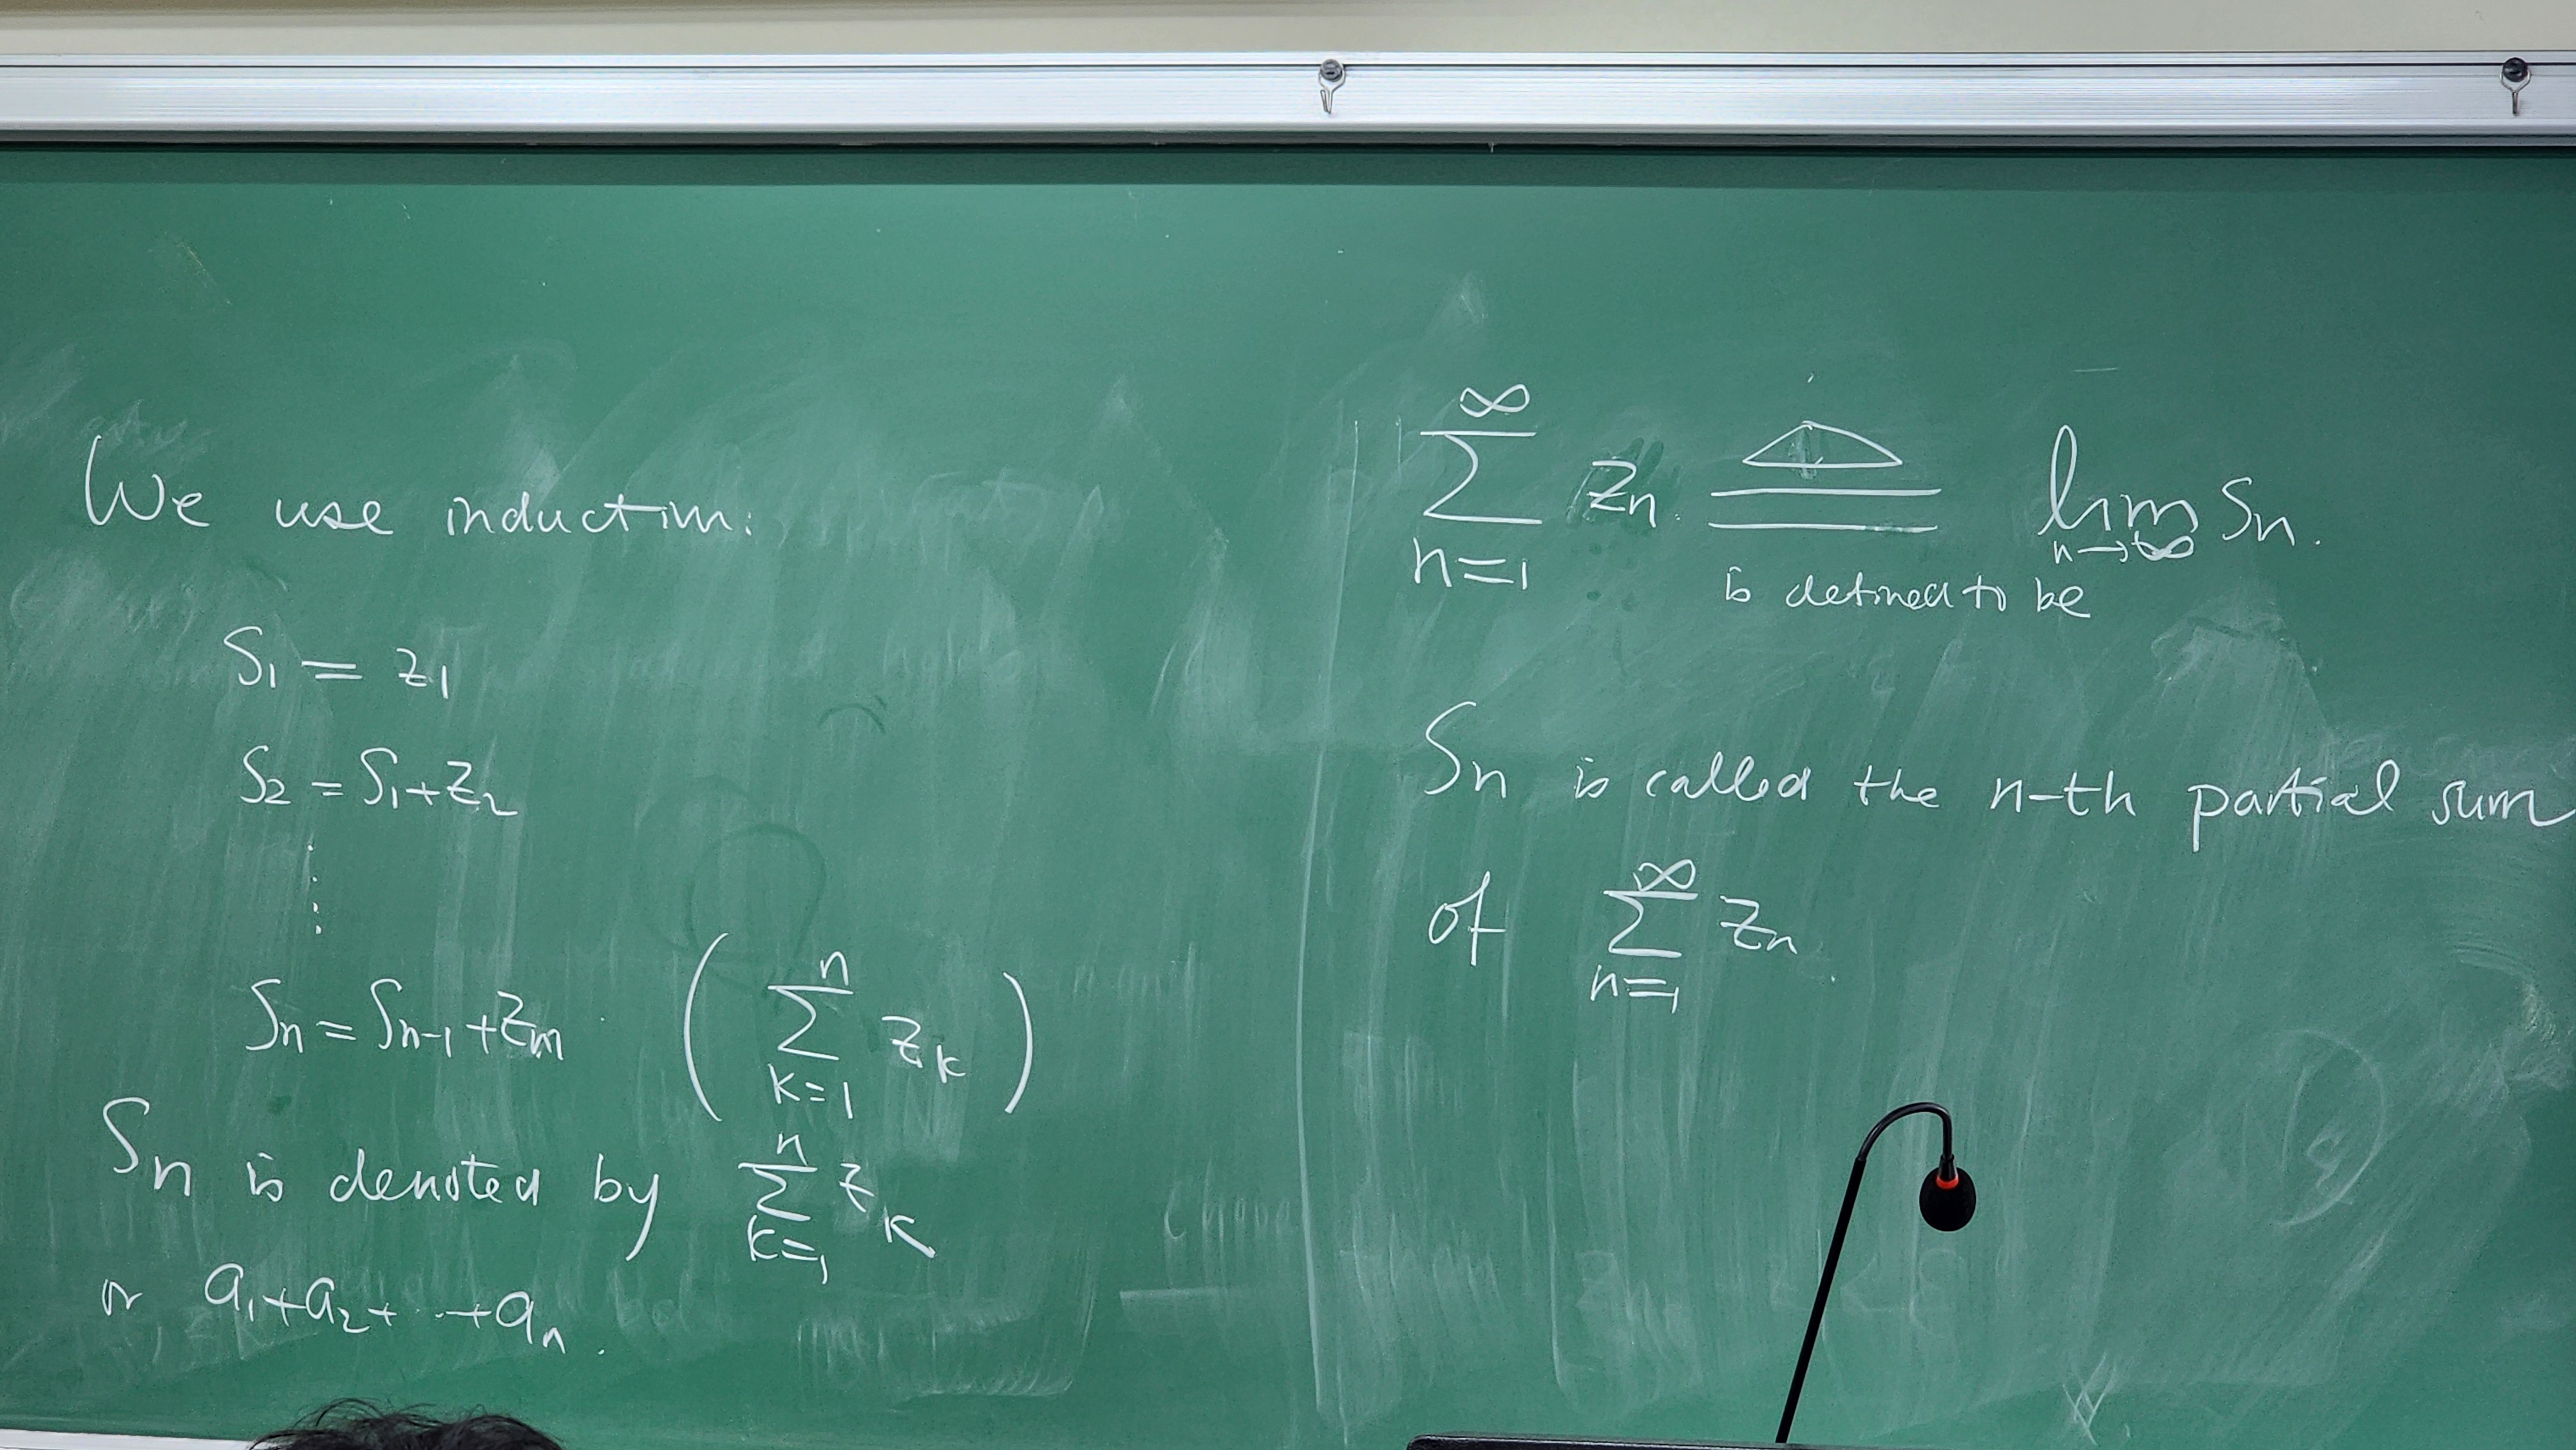 We use induction:
S₁ = z₁
S₂ = S₁+z₂
⋮
Sₙ = Sₙ₋₁+zₘ (∑ₖ₌₁ⁿ zₖ)
Sₙ is denoted by ∑ₖ₌₁ⁿ zₖ
or a₁+a₂+⋯+aₙ.
∑ₙ₌₁^∞ zₙ ≜ lim_{n→∞} Sₙ.
is defined to be
Sₙ is called the n-th partial sum
of ∑ₙ₌₁^∞ zₙ.